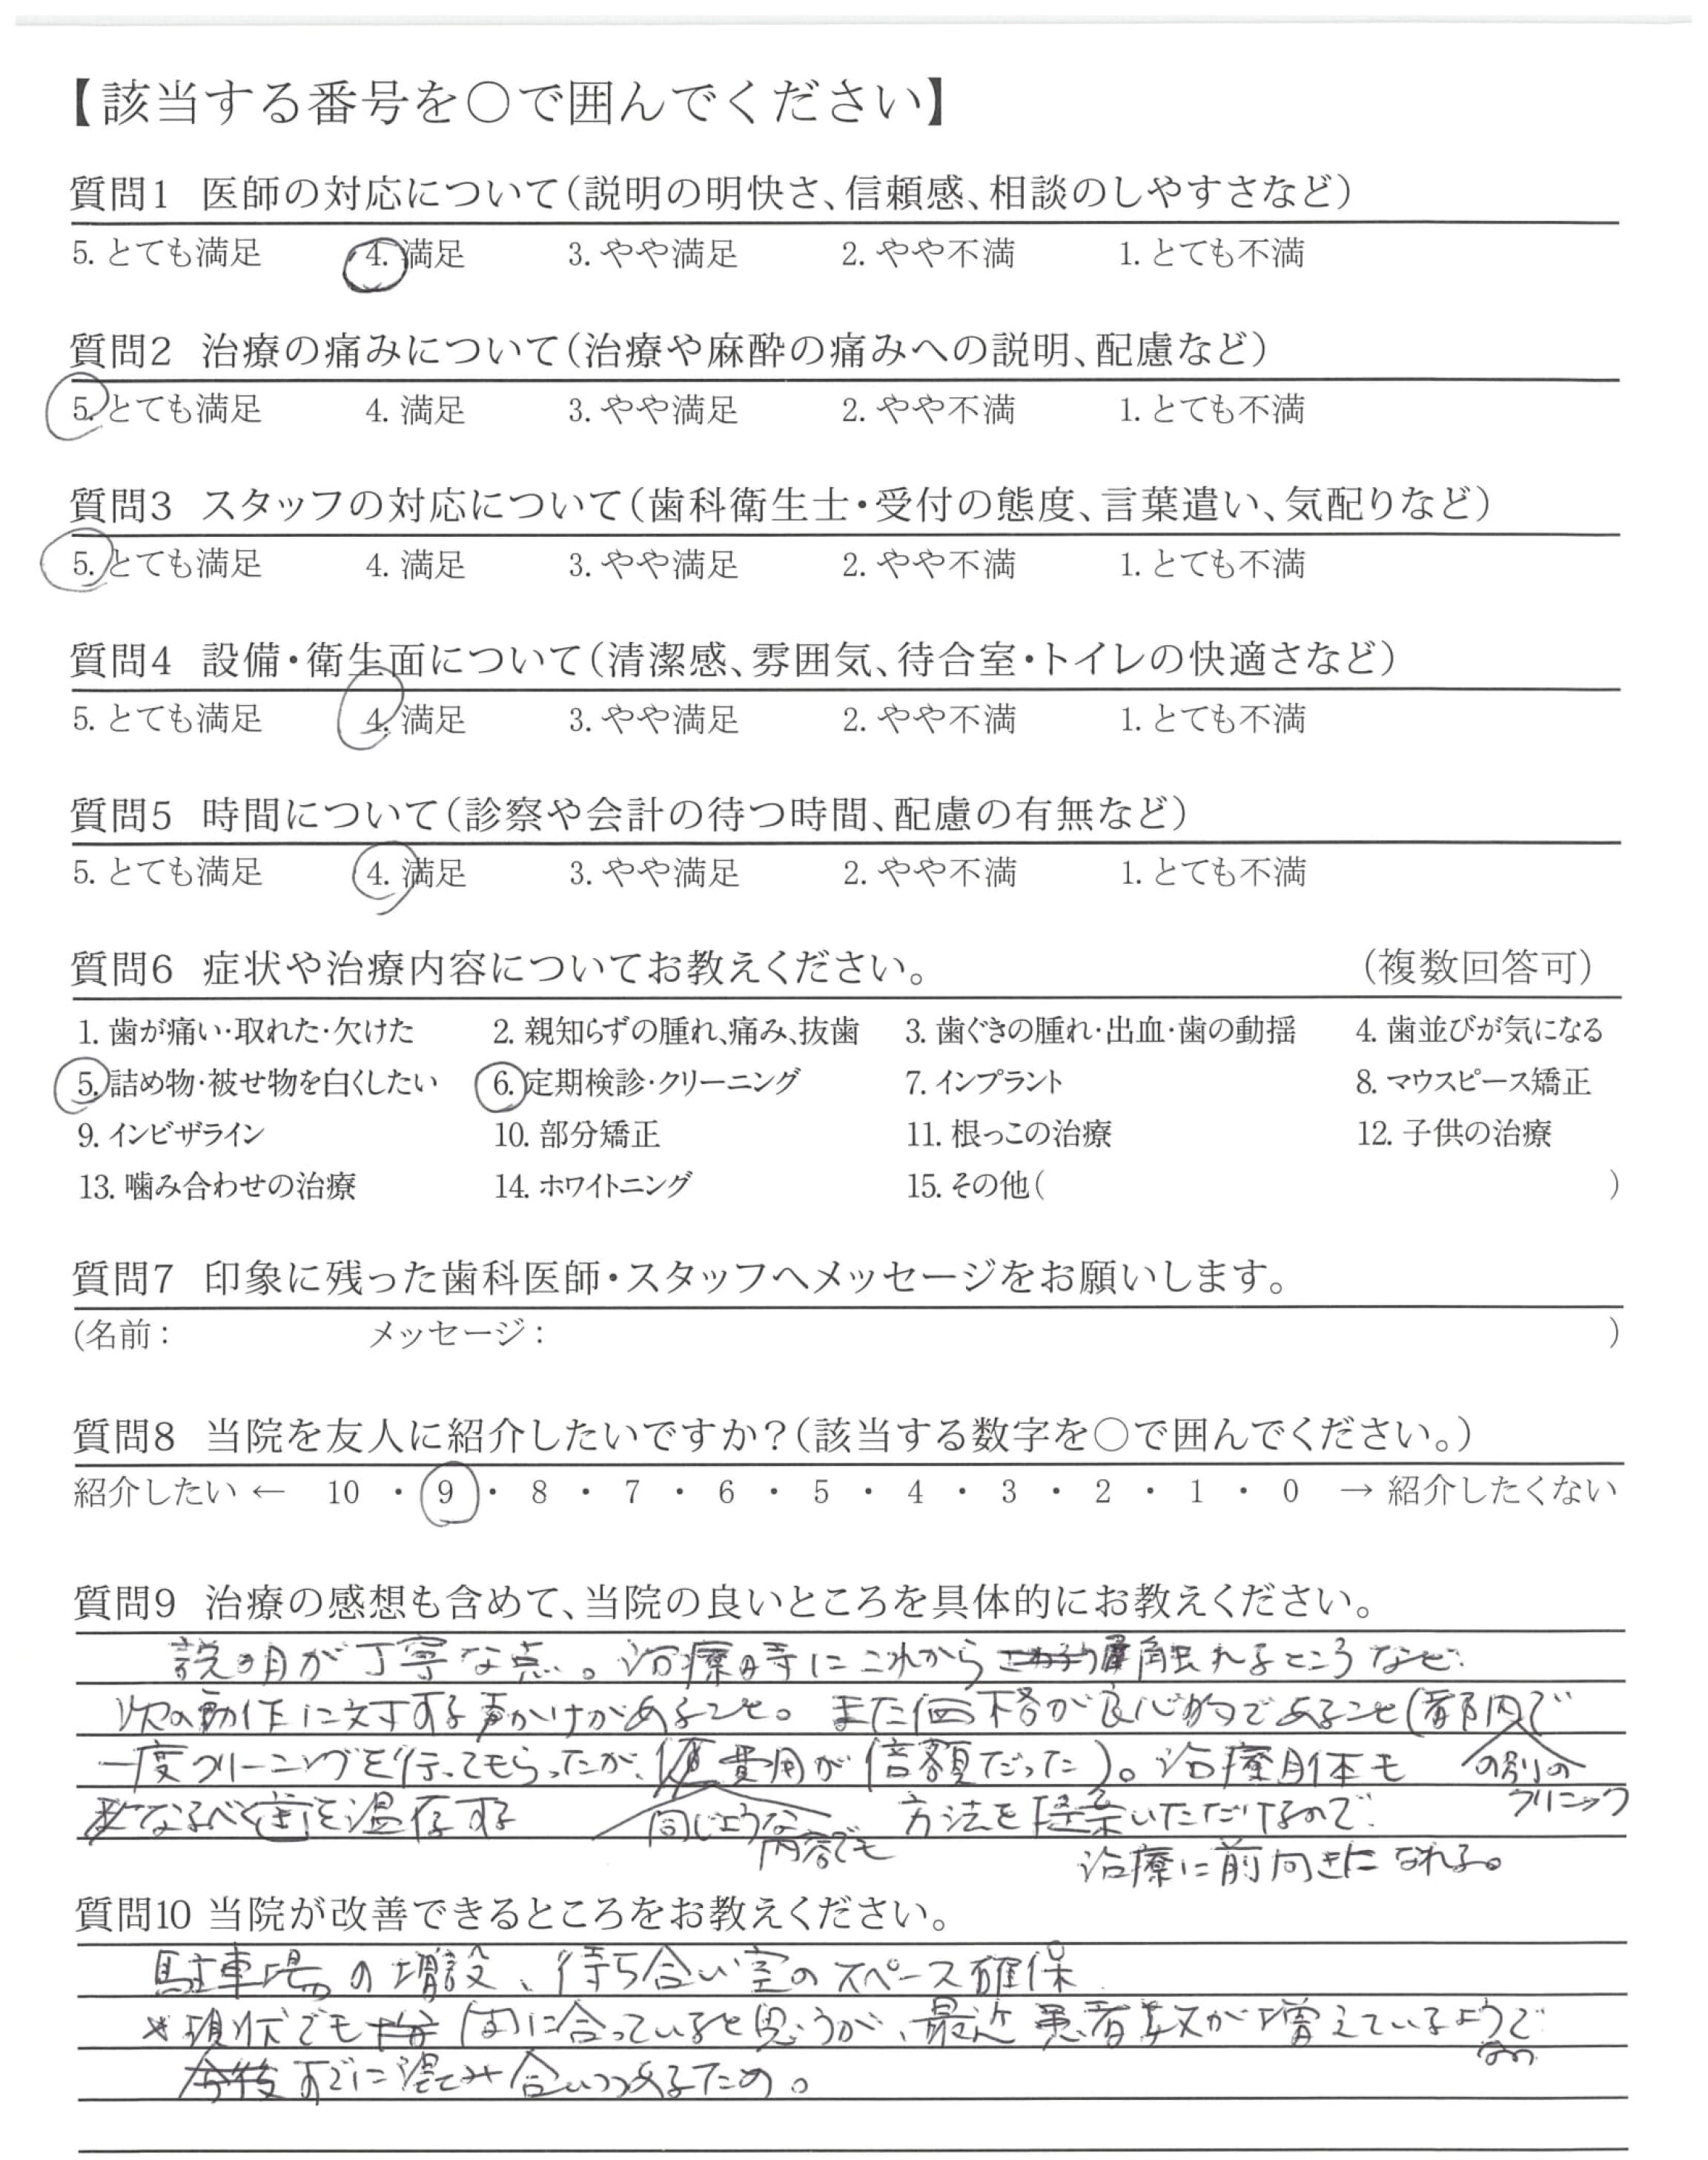 【該当する番号を○で囲んでください】
質問1 医師の対応について(説明の明快さ、信頼感、相談のしやすさなど)
5. とても満足 4. 満足 3. やや満足 2. やや不満 1. とても不満
質問2 治療の痛みについて(治療や麻酔の痛みへの説明、配慮など)
5. とても満足 4. 満足 3. やや満足 2. やや不満 1. とても不満
質問3 スタッフの対応について(歯科衛生士・受付の態度、言葉遣い、気配りなど)
5. とても満足 4. 満足 3. やや満足 2. やや不満 1. とても不満
質問4 設備・衛生面について(清潔感、雰囲気、待合室・トイレの快適さなど)
5. とても満足 4. 満足 3. やや満足 2. やや不満 1. とても不満
質問5 時間について(診察や会計の待つ時間、配慮の有無など)
5. とても満足 4. 満足 3. やや満足 2. やや不満 1. とても不満
質問6 症状や治療内容についてお教えください。 (複数回答可)
1. 歯が痛い・取れた・欠けた 2. 親知らずの腫れ、痛み、抜歯 3. 歯ぐきの腫れ・出血・歯の動揺 4. 歯並びが気になる
5. 詰め物・被せ物を白くしたい 6. 定期検診・クリーニング 7. インプラント 8. マウスピース矯正
9. インビザライン 10. 部分矯正 11. 根っこの治療 12. 子供の治療
13. 噛み合わせの治療 14. ホワイトニング 15. その他( )
質問7 印象に残った歯科医師・スタッフへメッセージをお願いします。
(名前: メッセージ: )
質問8 当院を友人に紹介したいですか?(該当する数字を○で囲んでください。)
紹介したい ← 10 ・ 9 ・ 8 ・ 7 ・ 6 ・ 5 ・ 4 ・ 3 ・ 2 ・ 1 ・ 0 → 紹介したくない
質問9 治療の感想も含めて、当院の良いところを具体的にお教えください。
説明が丁寧な点。治療時にこれから触れるところなど
次の動作に対する声かけがあること。また価格が良心的であること(都内で
一度クリーニングを行ってもらったが、費用が倍額だった)。治療自体も
の別の
クリニック
なるべく歯を温存する 方法を提案いただけるので
同じような
内容でも
治療に前向きになれる。
質問10 当院が改善できるところをお教えください。
駐車場の増設、待ち合い室のスペース確保
*現状でも間に合っていると思うが、最近患者数が増えているようで
なの
すでに混み合いつつあるため。